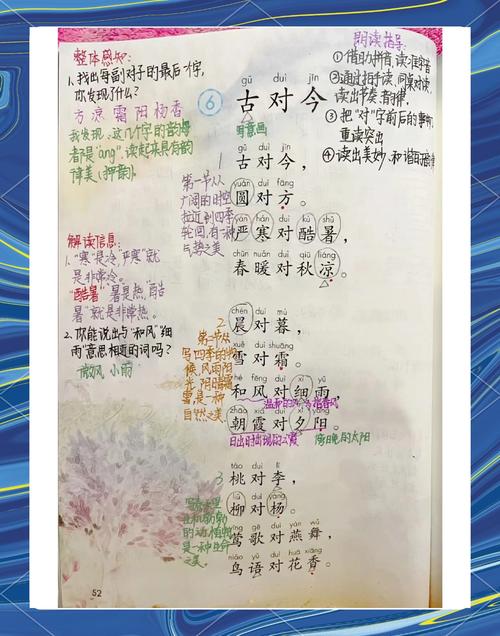 整体感知:
1、找出每副对子的最后一个字,
你发现了什么?
方 凉 霜 阳 杨 香
我发现,这几个字的韵母
都是"ang",读起来具有韵
律美(押韵)
朗读指导:
①借助拼音,读准字音
②通过拍手读、同桌对读,
读出节奏、韵律,
③把"对"字前后的事物,
重读突出
④读出美妙、和谐
gǔ duì jīn
6 古对今
写意画
1
古对今,
yuán duì fāng
圆对方。
yán hán duì kù shǔ
严寒对酷暑,
chūn nuǎn duì qiū liáng
春暖对秋凉。
第一节从
广阔的时空
拉近到四季
轮回,有一种
气势之美
解读信息:
1、"寒"是冷,"严寒"就
是非常冷。
"酷暑""暑是热,"酷
暑"就是非常热。
2、你能说出与"和风""细
雨"意思相近的词吗?
微风 小雨
2
chén duì mù
晨对暮,
xuě duì shuāng
雪对霜。
hé fēng duì xì yǔ
和风对细雨,
zhāo xiá duì xī yáng
朝霞对夕阳。
日出时出现的云霞
傍晚的太阳
第二节
写四季的
自然之美
3
táo duì lǐ
桃对李,
liǔ duì yáng
柳对杨。
yīng gē duì yàn wǔ
莺歌对燕舞,
niǎo yǔ duì huā xiāng
鸟语对花香。
的动植物
是一种生命
之美。
52